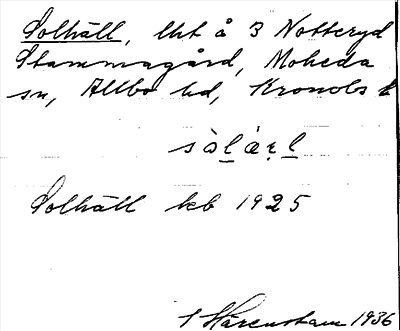 Solhäll, lht å 3 Notteryd
Stammagård, Moheda
sn, Allbo hd, Kronobs l
Solhäll kb 1925
1936